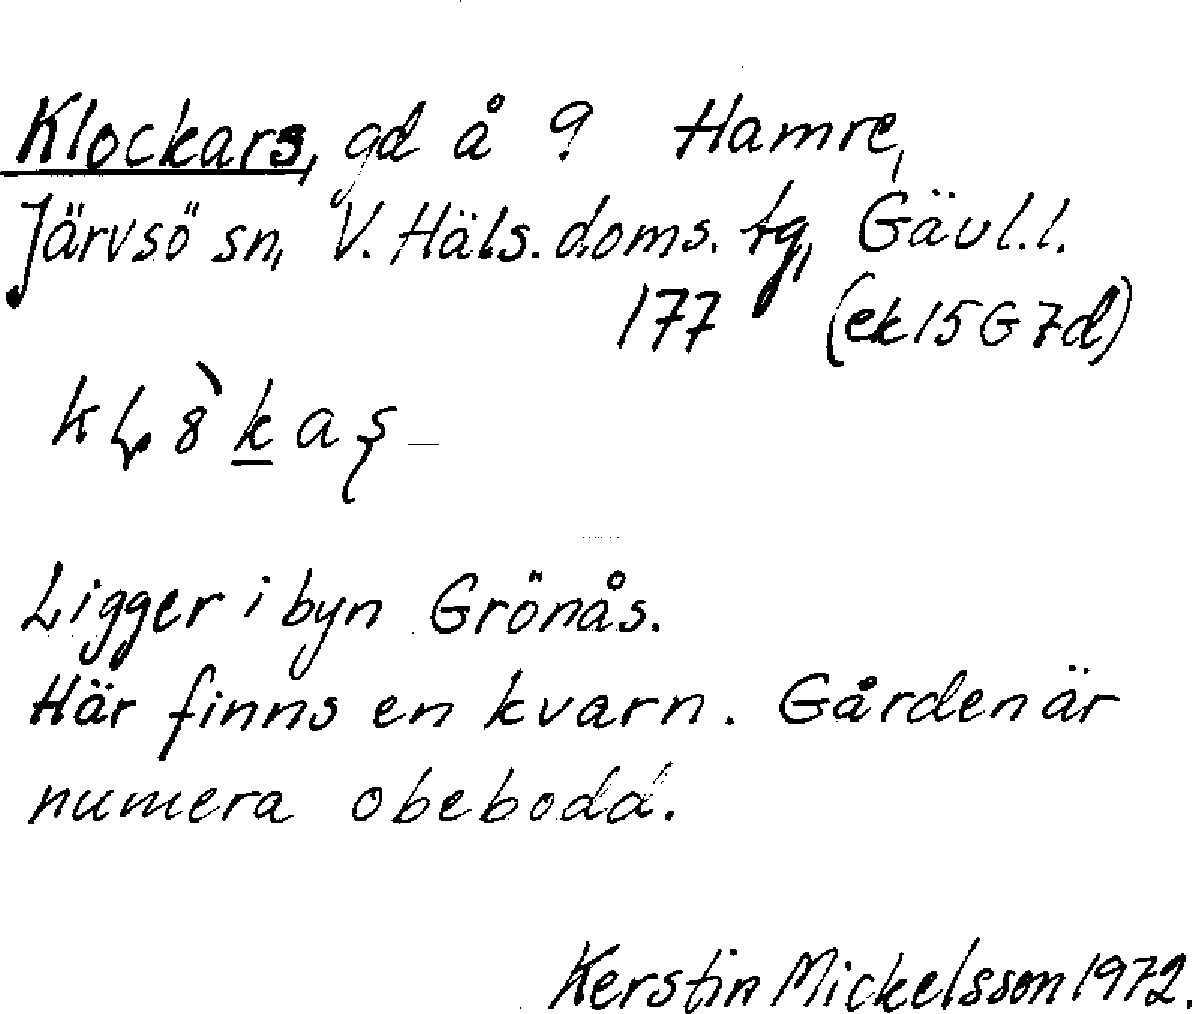 Klockars, gd å 9 Hamre,
Järvsö sn, V. Häls. doms. tg, Gävl.l.
177 (ek 15 G 7d)
Ligger i byn Grönås.
Här finns en kvarn. Gården är
numera obebodd.
Kerstin Mickelsson 1972.